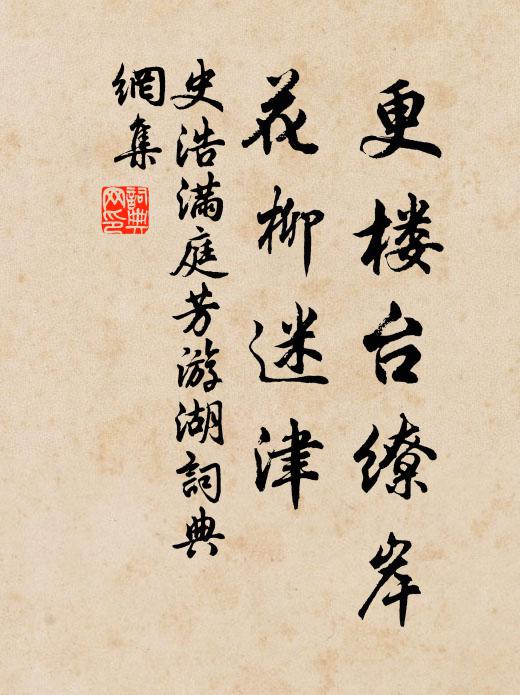 更楼台缭岸
花柳迷津
史浩满庭芳游湖詞典
網集
詞典
网印